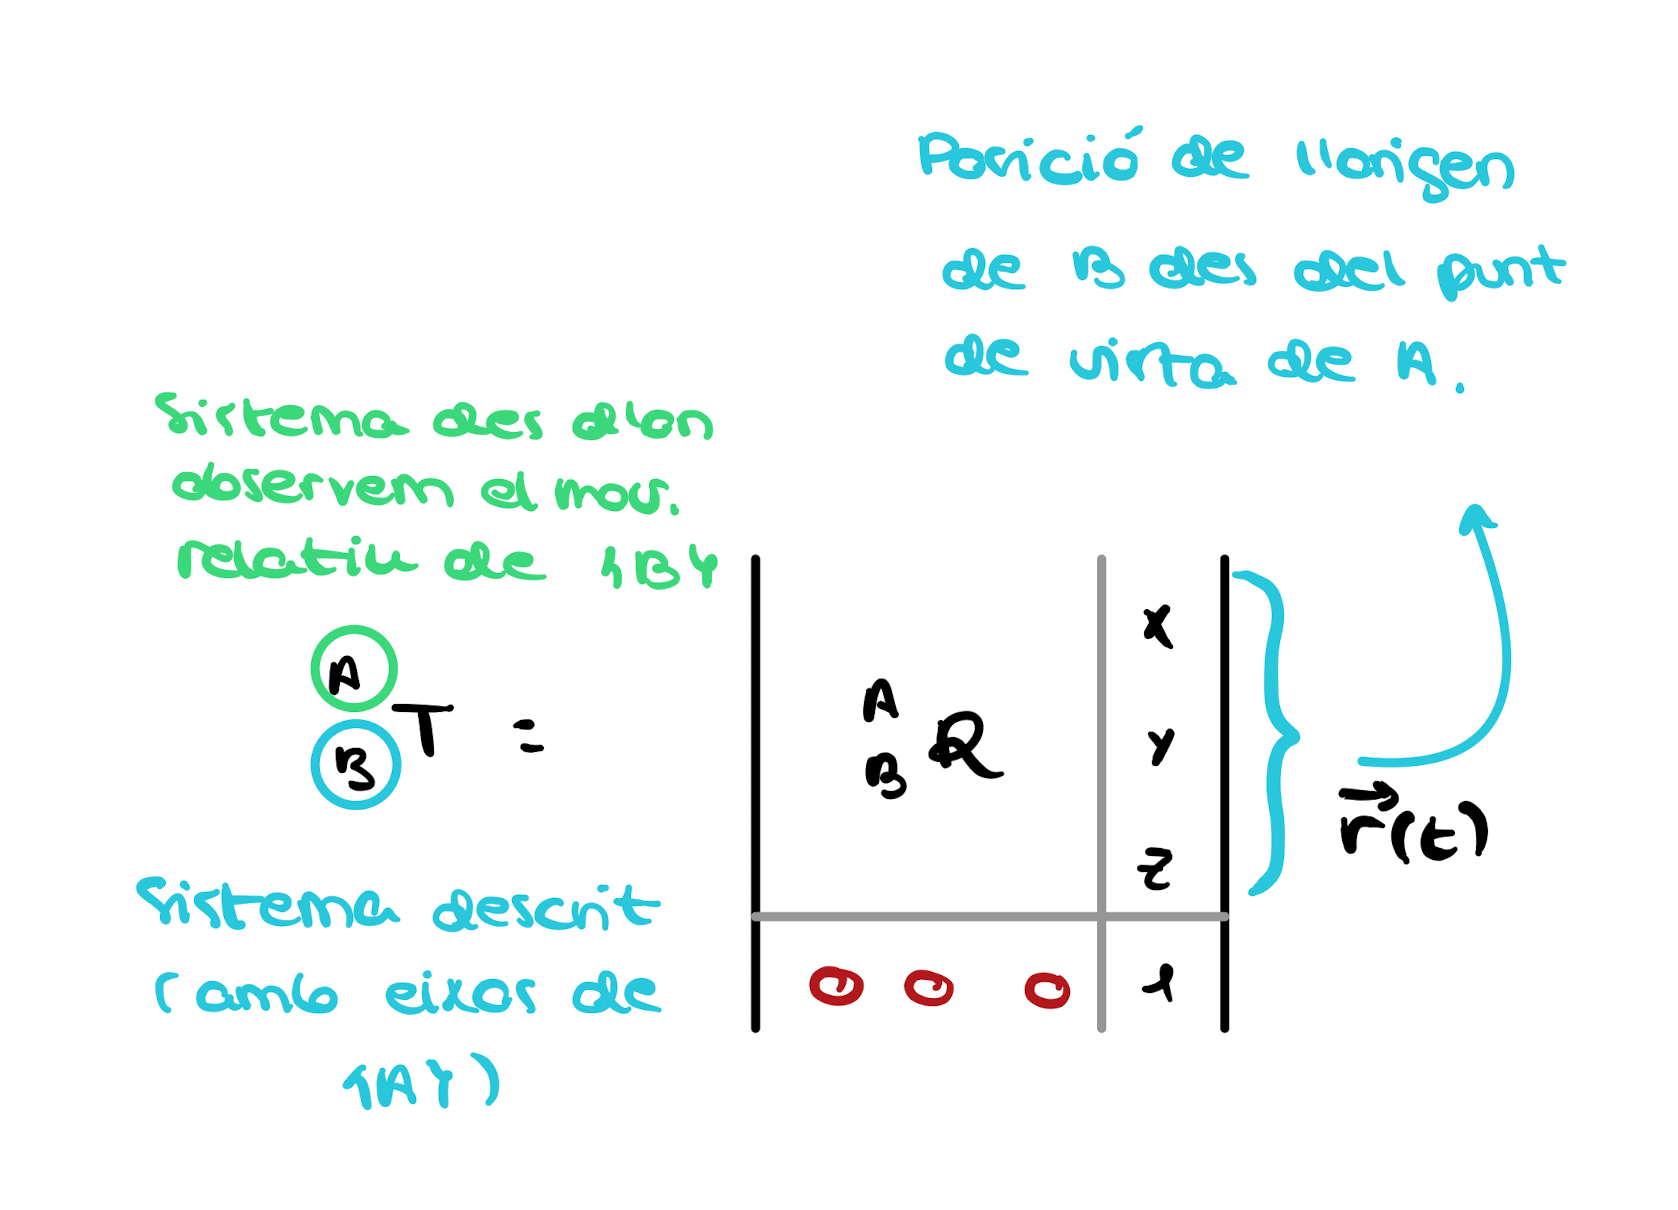 Posició de l'origen
de B des del punt
de vista de A.
Sistema des d'on
observem el mov.
relatiu de {B}
A
B T =
A
B R
x
y
z
0 0 0 1
r(t)
Sistema descrit
(amb eixos de
{A})